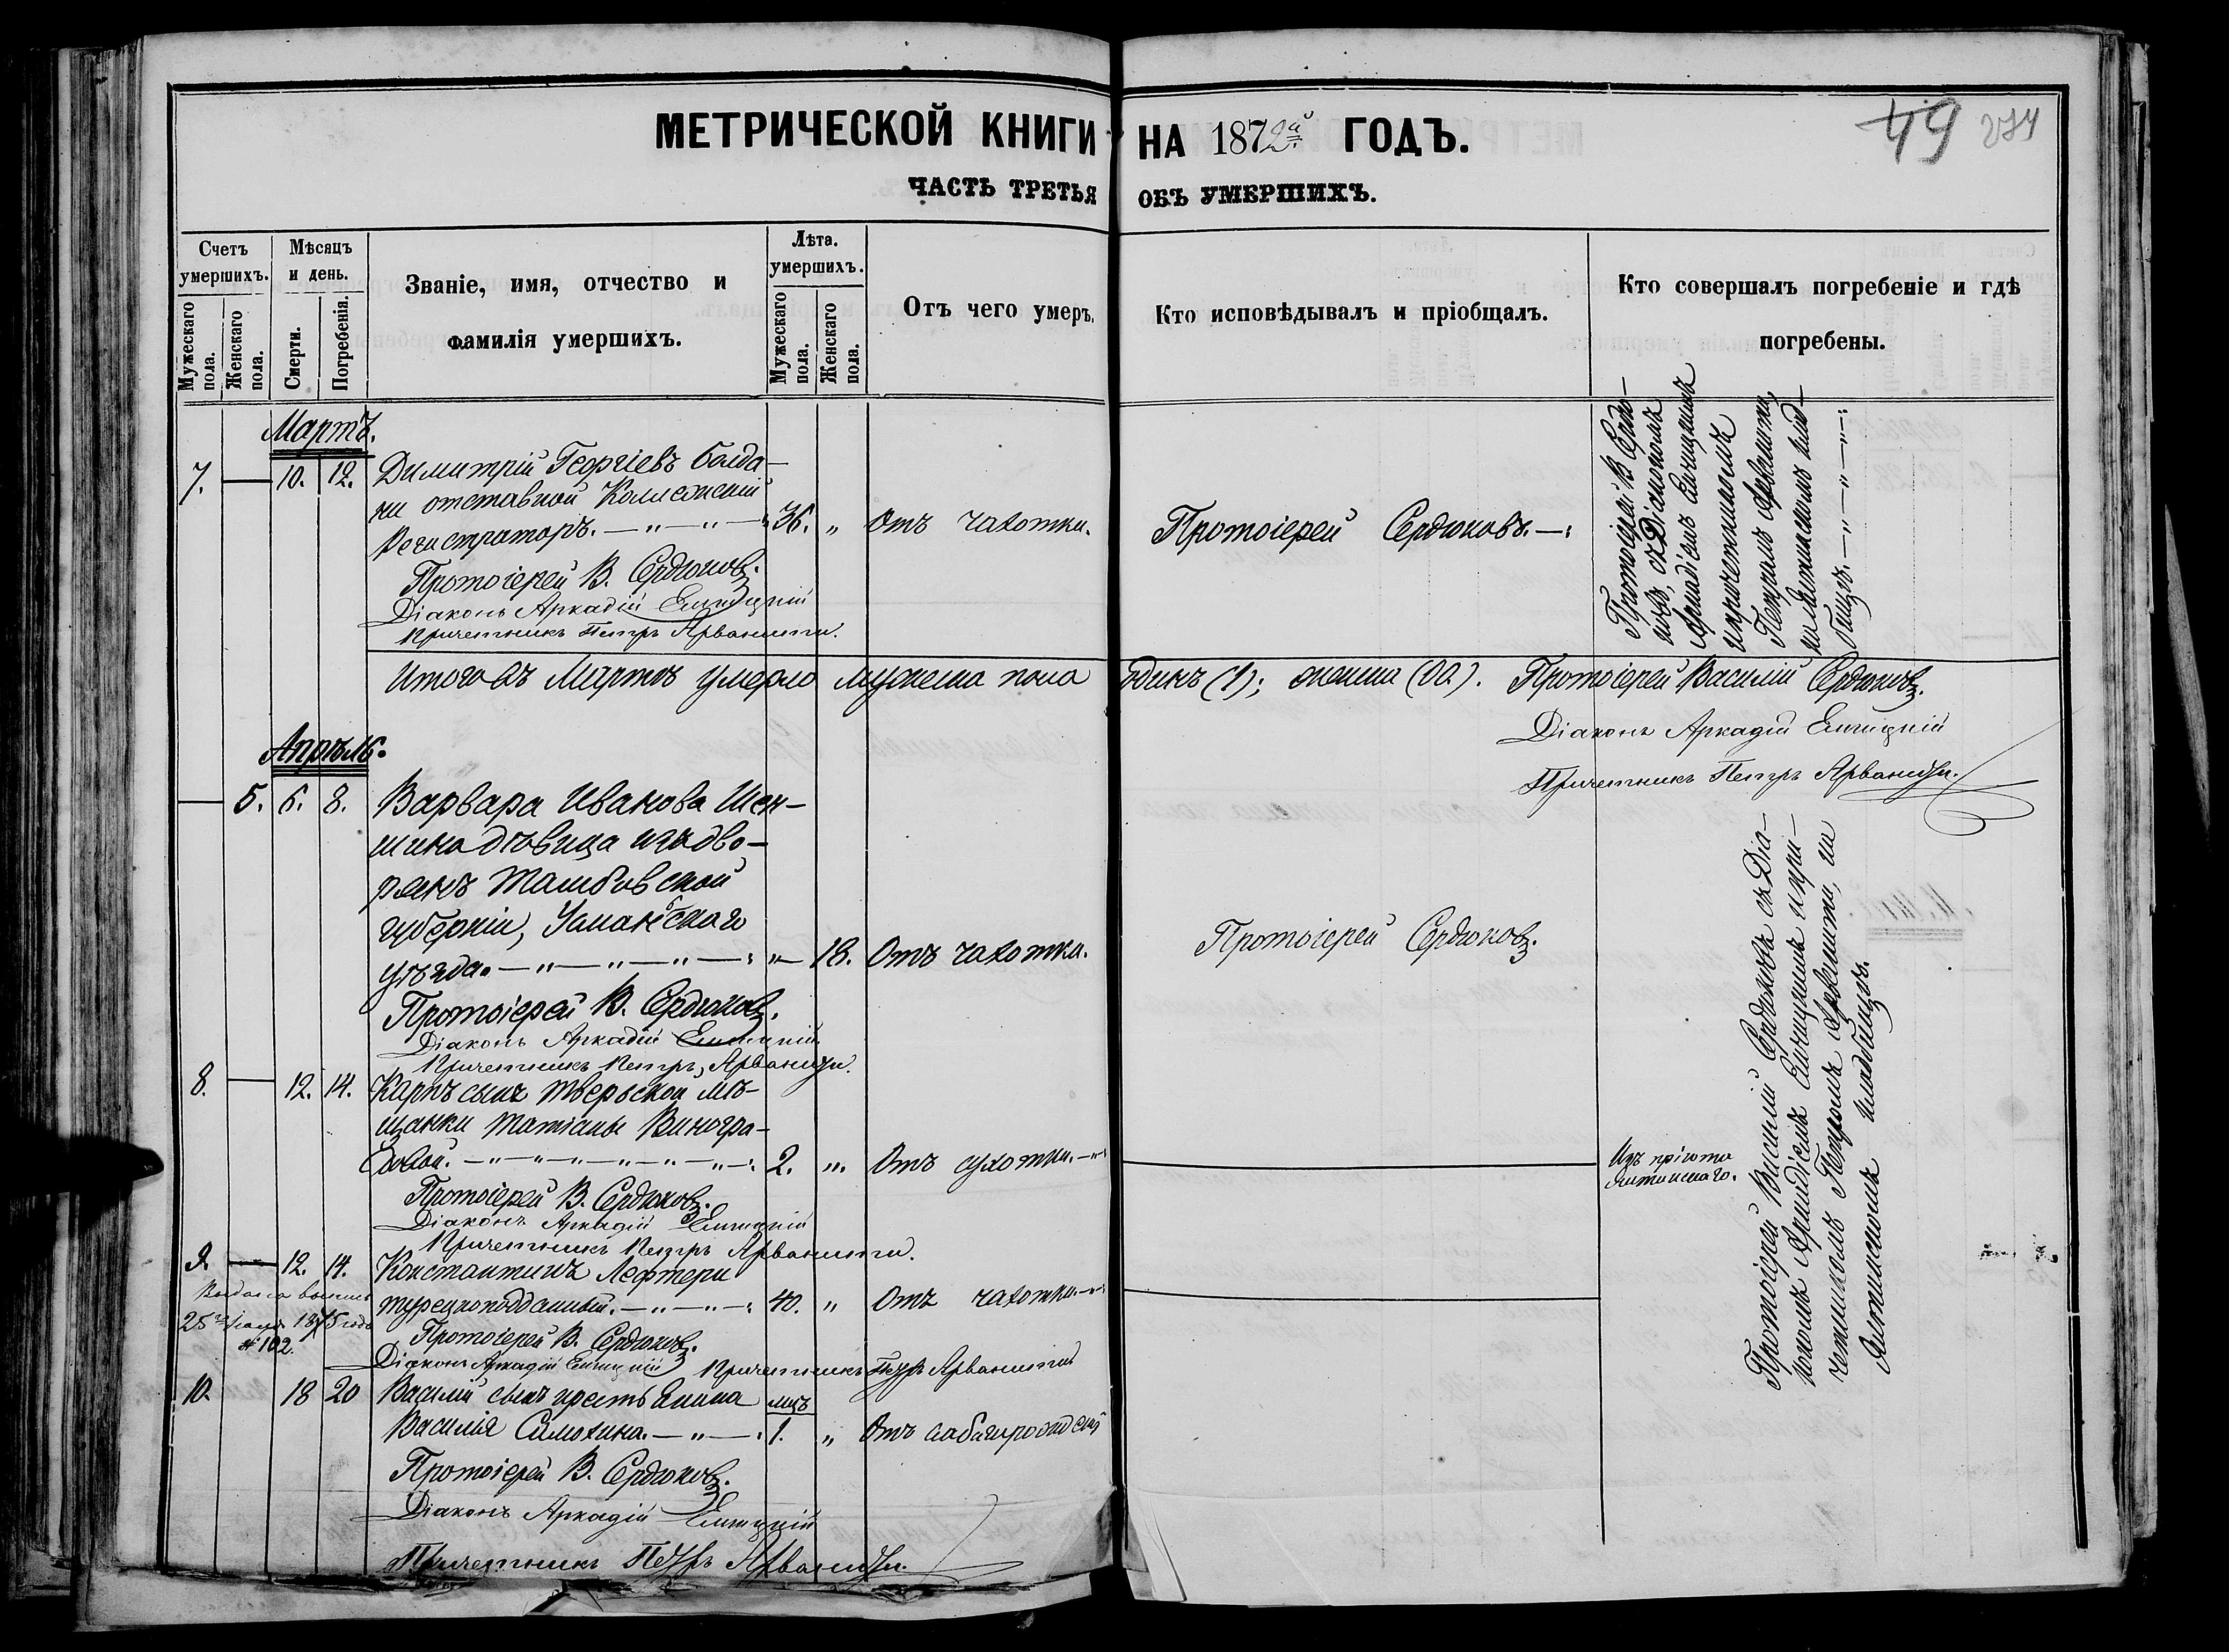 МЕТРИЧЕСКОЙ КНИГИ НА 1872й ГОДЪ.
49 234
ЧАСТЬ ТРЕТЬЯ ОБЪ УМЕРШИХЪ.
Счетъ умершихъ.
Мужескаго пола.
Женскаго пола.
Мѣсяцъ и день.
Смерти.
Погребенія.
Званіе, имя, отчество и
фамилія умершихъ.
Лѣта. умершихъ.
Мужескаго пола.
Женскаго пола.
Отъ чего умеръ.
Кто исповѣдывалъ и пріобщалъ.
Кто совершалъ погребеніе и гдѣ
погребены.
Мартъ.
7. — 10. 12. Димитрій Георгіевъ Болда-
ни отставной Коллежскій
Регистраторъ. — „ — „ —: 36. „ Отъ чахотки. Протоіерей Сердюковъ. —:
Протоіерей В. Сердюковъ.
Діаконъ Аркадій Епицкій
Причетникъ Петръ Арванити.
Протоіерей В. Сердю-
ковъ, съ Діакономъ
Аркадіемъ Епицкимъ
и причетникомъ
Петромъ Арванити,
кладбищѣ. — „ — „ — „ —:
Итого въ Мартѣ умерло мужеска пола одинъ (1); женска (00). Протоіерей Василій Сердюковъ.
Діаконъ Аркадій Епицкій
Причетникъ Петръ Арванити.
Апрѣль.
— 5. 6. 8. Варвара Иванова Шен-
шина дѣвица изъ дво-
рянъ Тамбовской
губерніи, Усманьскаго
уѣзда. — „ — „ — „ —: „— 18. Отъ чахотки. Протоіерей Сердюковъ.
Протоіерей В. Сердюковъ.
Діаконъ Аркадій Епицкій
Причетникъ Петръ Арванити.
8. — 12. 14. Карпъ сынъ Тверьской мѣ-
щанки Татіаны Виногра-
довой. — „ — „ — „ — „ — „ —: 2. „. Отъ сухотки. — „ Изъ пріюта
Ялтинскаго.
Протоіерей В. Сердюковъ.
Діаконъ Аркадій Епицкій
Причетникъ Петръ Арванити.
9. — 12. 14. Константинъ Лефтери
турецкоподданный. — „ — „ —: 40. „ Отъ чахотки. — „
Выдана выпись
25го 1875 года
№ 102.
Протоіерей В. Сердюковъ.
Діаконъ Аркадій Епицкій Причетникъ Петръ Арванити
10. 18 20 Василій сынъ крестьянина мцъ
Василія Самохина. — „ —: 1. „ Отъ слабаго рожденія
Протоіерей В. Сердюковъ.
Діаконъ Аркадій Епицкій
Причетникъ Петръ Арванити.
Протоіерей Василій Сердюковъ съ Діа-
кономъ Аркадіемъ Епицкимъ и при-
четникомъ Петромъ Арванити, на
Ялтинскомъ кладбищѣ.